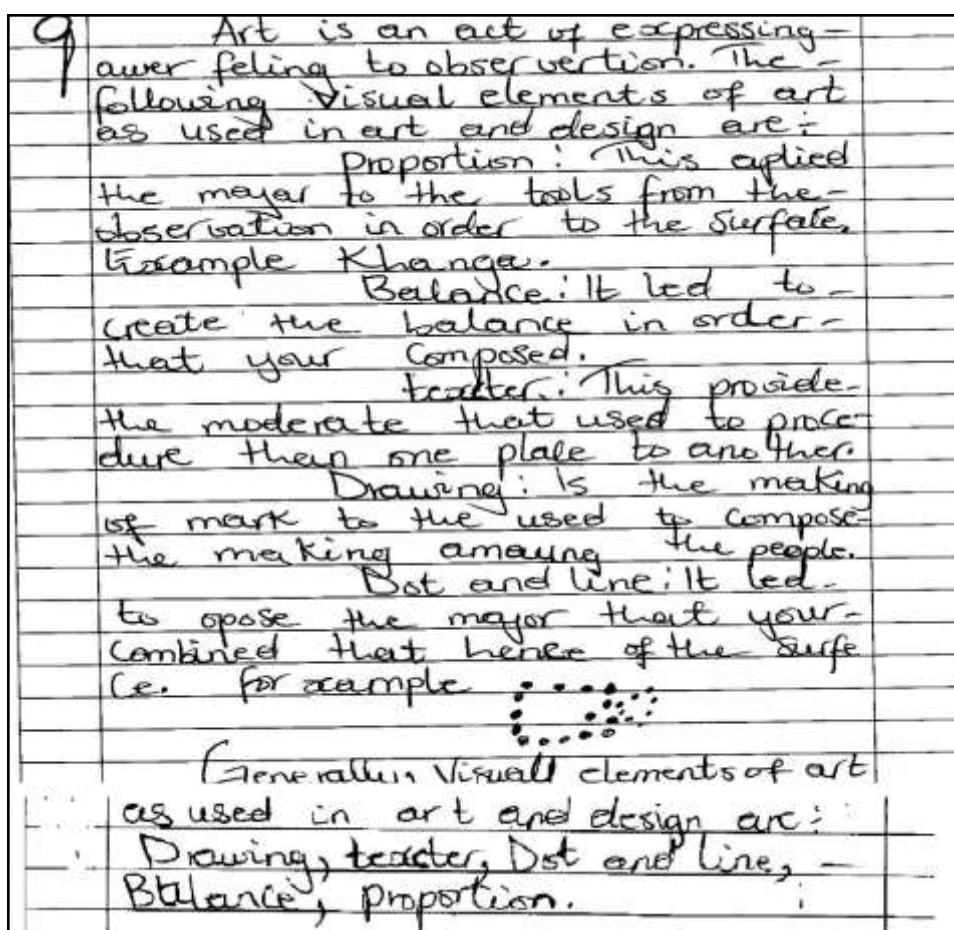 9 Art is an act of expressing -
awer feling to observertion. The -
following Visual elements of art
as used in art and design are :-
Proportion : This aplied
the mayar to the tools from the -
observation in order to the Surface.
Example Khanga.
Balance : It led to -
create the balance in order -
that your Composed.
teaxter. : This provide -
the moderate that used to proce-
dure than one place to another.
Drawing : Is the making
of mark to the used to compose-
the making amaung the people.
Dot and line : It led -
to opose the major that your -
Combined that hence of the surfe
Ce. for xample
Generally, Visuall elements of art
as used in art and design are :
Drawing, teaxter, Dot and line, -
Balance, Proportion.